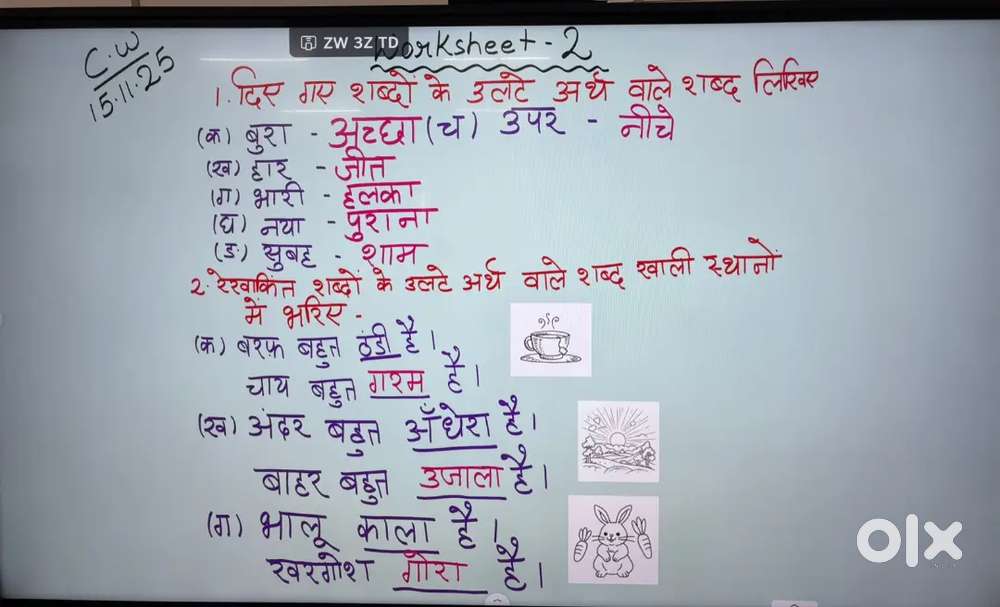 ZW 3Z TD
C.W
15.11.25
Worksheet - 2
1. दिए गए शब्दों के उलटे अर्थ वाले शब्द लिखिए
(क) बुरा - अच्छा (च) उपर - नीचे
(ख) हार - जीत
(ग) भारी - हलका
(घ) नया - पुराना
(ङ) सुबह - शाम
2. रेखांकित शब्दों के उलटे अर्थ वाले शब्द खाली स्थानों
में भरिए -
(क) बरफ़ बहुत ठंडी है।
चाय बहुत गरम है।
(ख) अंदर बहुत अँधेरा है।
बाहर बहुत उजाला है।
(ग) भालू काला है।
खरगोश गोरा है।
olx